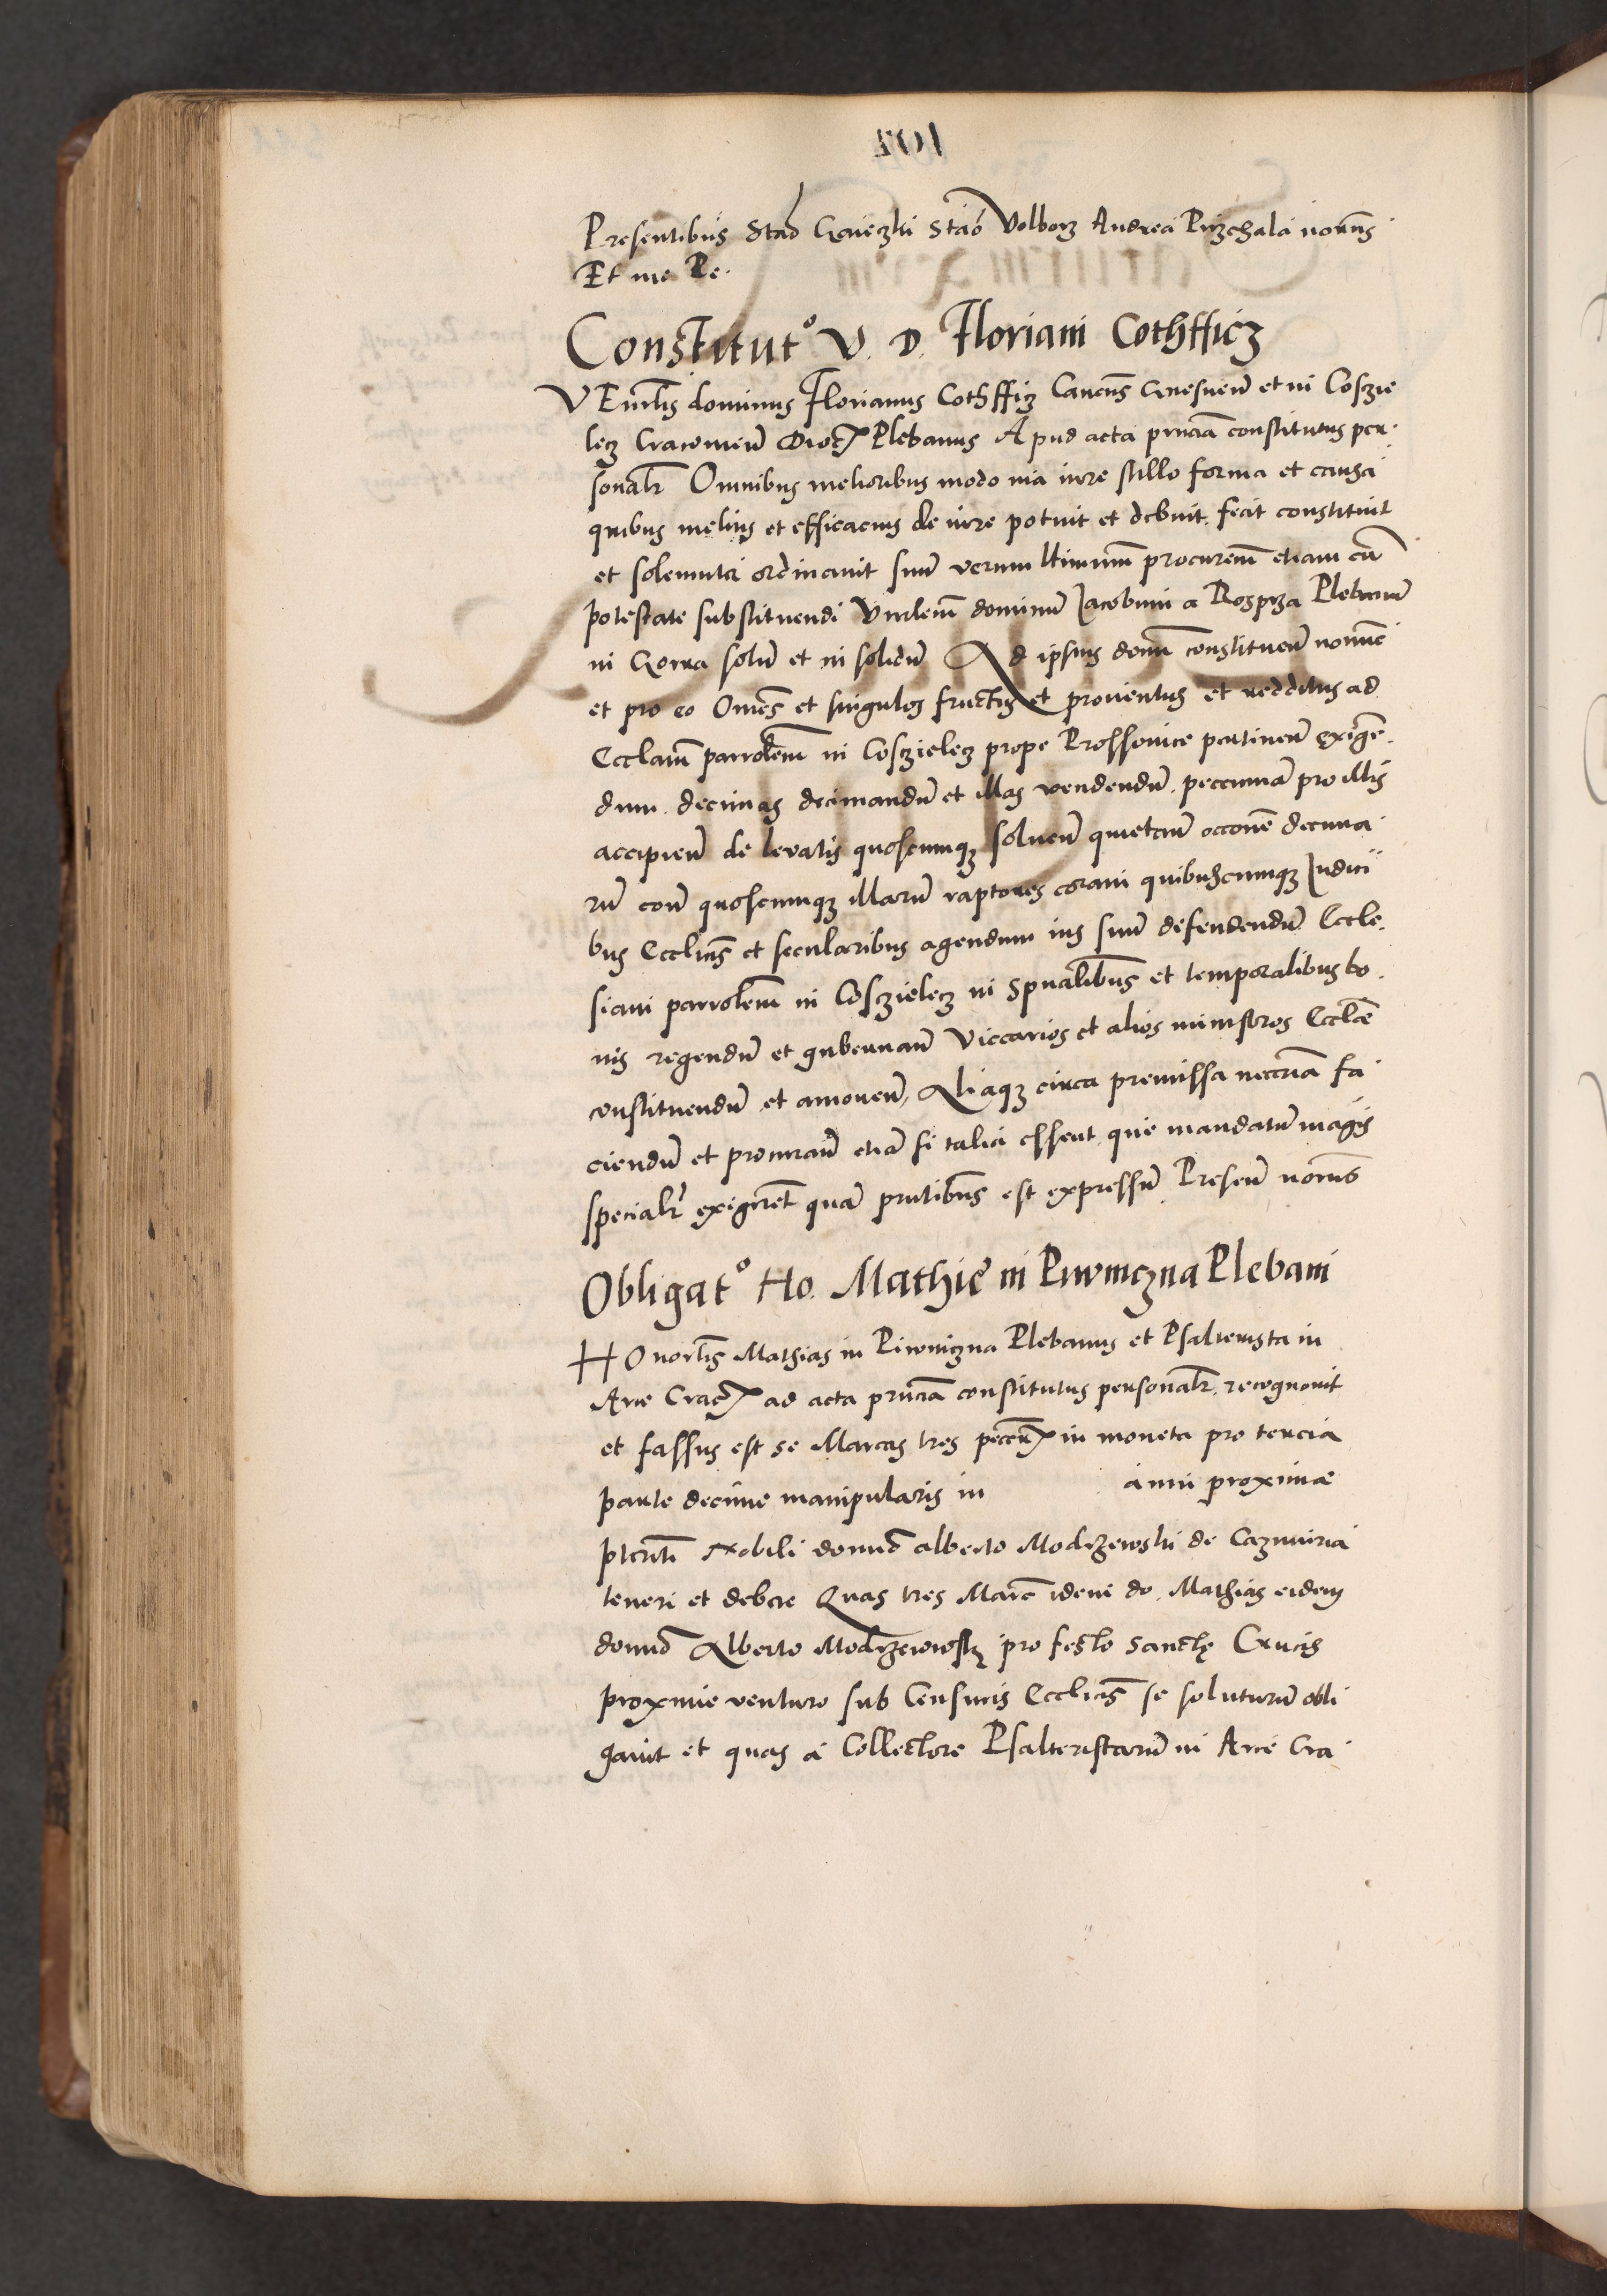 Presentibus Stad Gnieczki Stao Volborz Andrea Pirzchala noruns
Et me Pe.
Constitut° V. D. Floriani Cothfficz
VEnrlis dominus Florianus Cothfficz Canōus Gnesneñ et in Cosczie
lecz Cracovieñ Dioc Plebanus Apud acta pnciā constitutus per
sonalr Omnibus melioribus modo via iure stillo forma et causa
quibus melius et efficacius de iure potuit et debuit. fecit constituit
et solemnitr ordinavit suū verum ltimum procuremū etiam cū
potestate substituendi Vnrlem dominū Jacobum a Rozprza Plebanū
in Gorka solū et in solidū Ad ipsius domī constitueñ nomine
et pro eo Omēs et singulos fructus et proventus et redditus ad
Ecclaiam parrolem in Cosczielecz prope Prossovice pertineñ exigē
dum. decimas decimandū et illas vendendū. peccuniā pro illis
accipieñ de levatis quoscumqz solveñ quietañ occone decima
rū coñ quoscumqz illarū raptores coram quibuscumqz Judici
bus Ecclicis et secularibus agendum ius suū defendendū Eccle
siam parrolem in Cosczielecz in spualibus et temporalibus bo
nis regendū et gubernañ Viccarios et alios ministros Ecclae
constituendū et amoveñ, Aliaqz circa premissa neccria fa
ciendū et procurañ etiā si talia essent que mandatū magis
specialr exigerēt quā pntibus est expressū Preseñ noruns
Obligat° Ho. Mathie in Piwniczna Plebani
HOnorlis Mathias in Piwniczna Plebanus et Psalterista in
Arce Crac ad acta pnciā constitutus personalr. recognovit
et fassus est se Marcas tres peccun in moneta pro tercia
parte decime manipularis in anni proxime
pteriti Nobili domno alberto Modrzewski de Cazmiria
teneri et debere Quas tres Marc idem do. Mathias eidem
domno Alberto Modrzewwsky pro festo sanctę Crucis
proxime venturo sub Censuris Ecclicis se soluturū obli
gavit et quas a Collectore Psalteristarū in Arce Cra